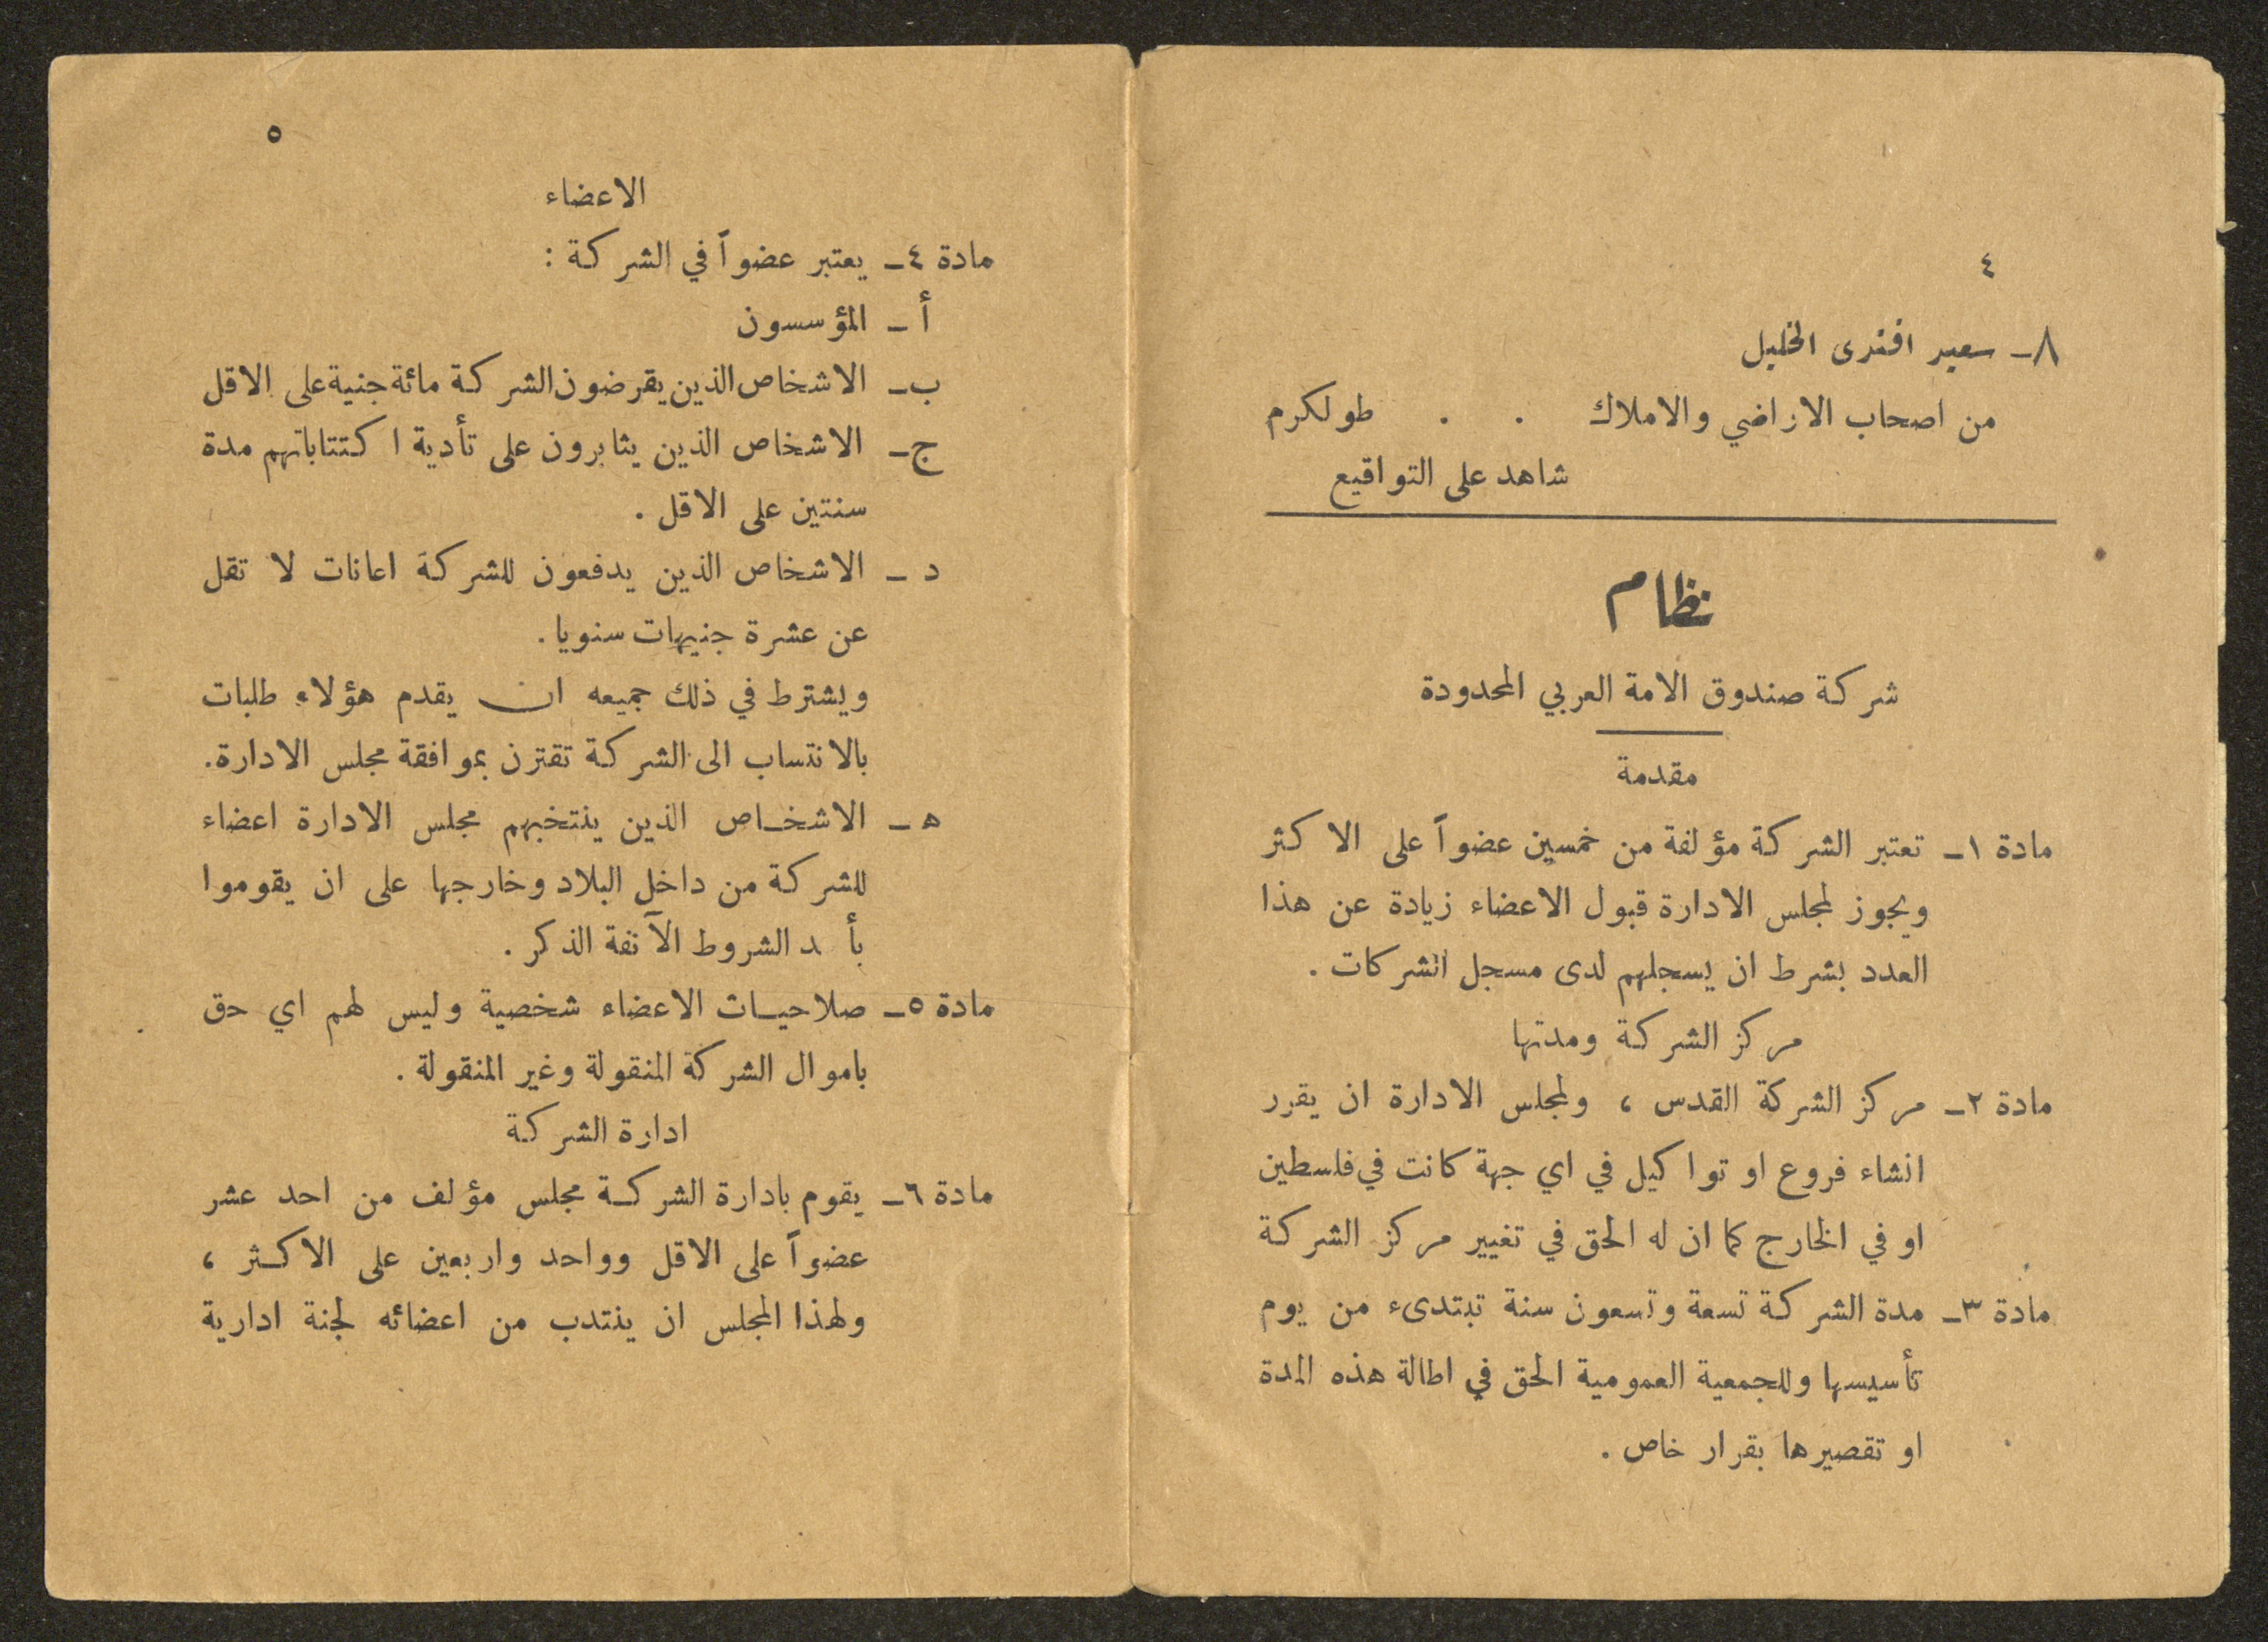 ٤
٨ـ سعيد افندى الخليل
من اصحاب الاراضي والاملاك . . طولكرم
شاهد على التواقيع
نظام
شركة صندوق الامة العربي المحدودة
مقدمة
مادة ١ـ تعتبر الشركة مؤلفة من خمسين عضواً على الاكثر
ويجوز لمجلس الادارة قبول الاعضاء زيادة عن هذا
العدد بشرط ان يسجلهم لدى مسجل الشركات .
مركز الشركة ومدتها
مادة ٢ـ مركز الشركة القدس ، ولمجلس الادارة ان يقرر
انشاء فروع او تواكيل في اي جهة كانت في فلسطين
او في الخارج كما ان له الحق في تغيير مركز الشركة
مادة ٣ـ مدة الشركة تسعة وتسعون سنة تبتدىء من يوم
تأسيسها وللجمعية العمومية الحق في اطالة هذه المدة
او تقصيرها بقرار خاص .
٥
الاعضاء
مادة ٤ـ يعتبر عضواً في الشركة :
أ ـ المؤسسون
ب ـ الاشخاص الذين يقرضون الشركة مائة جنية على الاقل
ج ـ الاشخاص الذين يثابرون على تأدية اكتتاباتهم مدة
سنتين على الاقل .
د ـ الاشخاص الذين يدفعون للشركة اعانات لا تقل
عن عشرة جنيهات سنويا .
ويشترط في ذلك جميعه ان يقدم هؤلاء طلبات
بالانتساب الى الشركة تقترن بموافقة مجلس الادارة.
ه ـ الاشخـاص الذين ينتخبهم مجلس الادارة اعضاء
للشركة من داخل البلاد وخارجها على ان يقوموا
الشروط الآنفة الذكر .
مادة ٥ـ صلاحيـات الاعضاء شخصية وليس لهم اي حق
باموال الشركة المنقولة وغير المنقولة .
ادارة الشركة
مادة ٦ـ يقوم بادارة الشركـة مجلس مؤلف من احد عشر
عضواً على الاقل وواحد واربعين على الاكـثر ،
ولهذا المجلس ان ينتدب من اعضائه لجنة ادارية